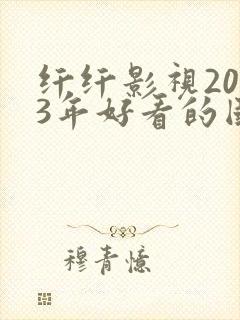 纤纤影视20
3年好看的国
穆青憶